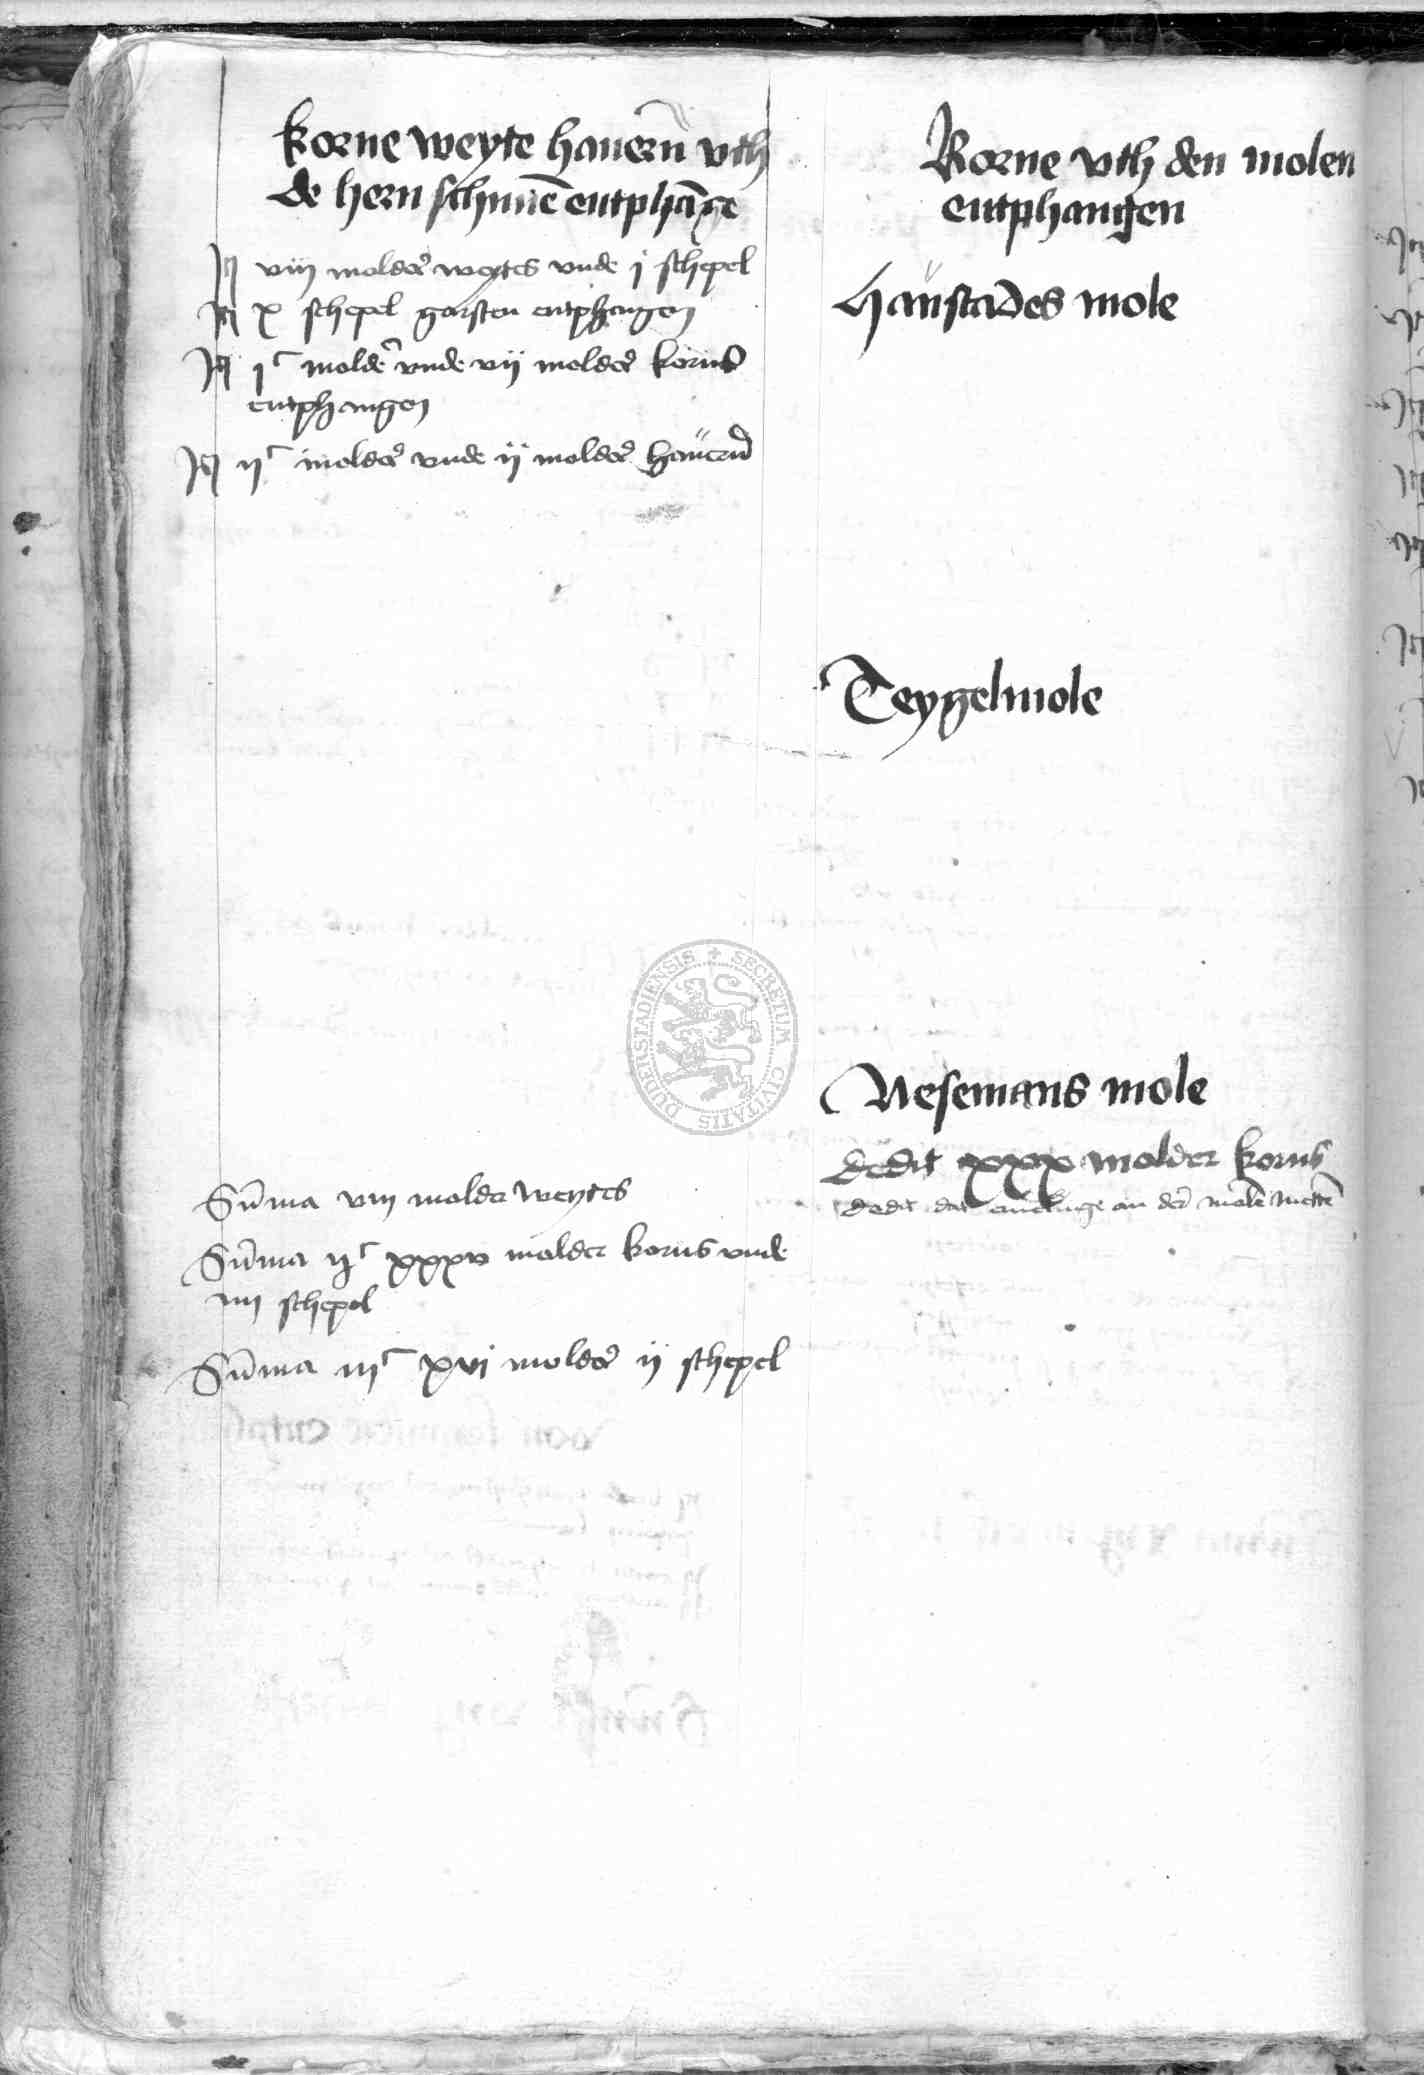 korne weyte hauern̄ vth
de hern schunē entphāge
It viij molder weytes vnde j schepel
It x schepel garsten entphangen
It jᶜ molder vnde vij molder korns
entphangen
It ijᶜ molder vnde ij molder hauern
Sum̄a viij molder weytes
Sum̄a ijᶜ xxxv molder korns vnde
iiij schepel
Sum̄a iijᶜ xvj molder ij schepel
Korne vth den molen
entphangen
Haüstades mole
Teygelmole
Wesemans mole
dedit xxx molder korns
dedit dat an der molē mettē
SECRETUM CIVITATIS DUDERSTADIENSIS